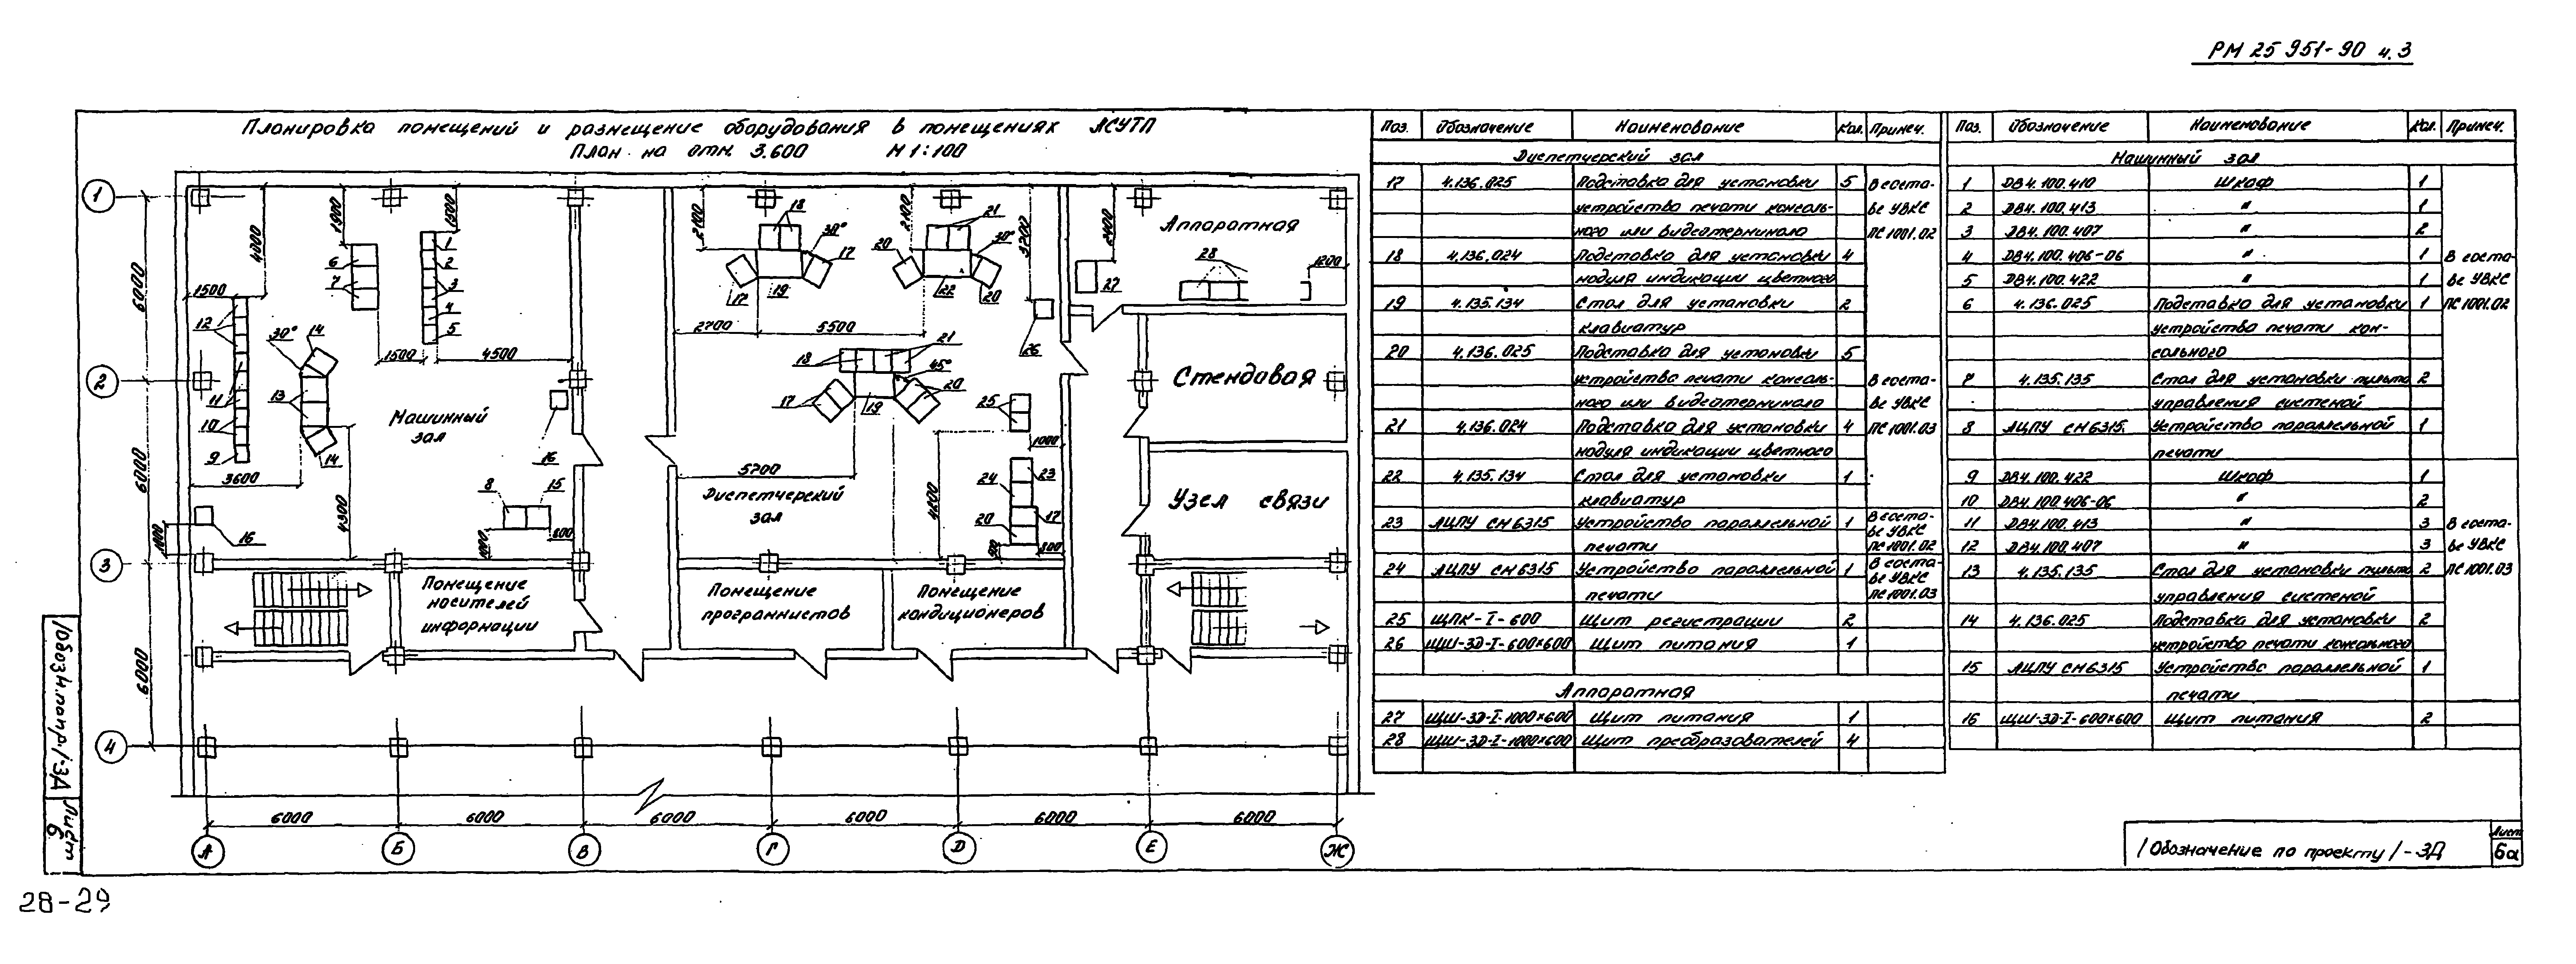 РМ 25 951-90 ч.3
Планировка помещений и размещение оборудования в помещениях АСУТП
План на отм. 3.600 М 1:100
1
2
3
4
6000
6000
6000
4000
1900
1500
6
7
1
2
3
4
5
1500
12
30°
14
13
11
10
9
14
1500
4500
Машинный
зал
16
3600
4300
8
15
1000
800
16
1000
2100
18
30°
17
17
19
2700
5500
2100
21
20
30°
22
20
3200
26
18
21
45°
20
17
19
25
1000
5700
Диспетчерский
зал
4200
24
23
20
17
800
2400
27
Аппаратная
28
1200
Стендовая
Узел связи
Помещение
носителей
информации
Помещение
программистов
Помещение
кондиционеров
6000 6000 6000 6000 6000 6000
А Б В Г Д Е Ж
Поз. Обозначение Наименование Кол. Примеч.
Диспетчерский зал
17 4.136.025 Подставка для установки 5 В соста-
устройства печати консоль- ве УВКС
ного или видеотерминала ПС 1001.02
18 4.136.024 Подставка для установки 4
модуля индикации цветного
19 4.135.134 Стол для установки 2
клавиатур
20 4.136.025 Подставка для установки 5
устройства печати консоль- В соста-
ного или видеотерминала ве УВКС
21 4.136.024 Подставка для установки 4 ПС 1001.03
модуля индикации цветного
22 4.135.134 Стол для установки 1
клавиатур
23 АЦПУ СМ6315 Устройство параллельной 1 В соста-
ве УВКС
печати ПС 1001.02
24 АЦПУ СМ6315 Устройство параллельной 1 В соста-
ве УВКС
печати ПС 1001.03
25 ЩПК-I-600 Щит регистрации 2
26 ЩШ-ЗД-I-600×600 Щит питания 1
Аппаратная
27 ЩШ-ЗД-I-1000×600 Щит питания 1
28 ЩШ-ЗД-I-1000×600 Щит преобразователей 4
Поз. Обозначение Наименование Кол. Примеч.
Машинный зал
1 ДВ4.100.410 Шкаф 1
2 ДВ4.100.413 " 1
3 ДВ4.100.407 " 2
4 ДВ4.100.406-06 " 1 В соста-
5 ДВ4.100.422 " 1 ве УВКС
6 4.136.025 Подставка для установки 1 ПС 1001.02
устройства печати кон-
сольного
7 4.135.135 Стол для установки пульта 2
управления системой
8 АЦПУ СМ6315. Устройство параллельной 1
печати
9 ДВ4.100.422 Шкаф 1
10 ДВ4.100.406-06 " 2
11 ДВ4.100.413 " 3 В соста-
12 ДВ4.100.407 " 3 ве УВКС
13 4.135.135 Стол для установки пульта 2 ПС 1001.03
управления системой
14 4.136.025 Подставка для установки 2
устройства печати консольного
15 АЦПУ СМ6315 Устройство параллельной 1
печати
16 ЩШ-ЗД-I-600×600 Щит питания 2
/Обозначение по проекту/-ЗД
Лист
6а
/Обозн.попр./-ЗД
Лист
6
28-29